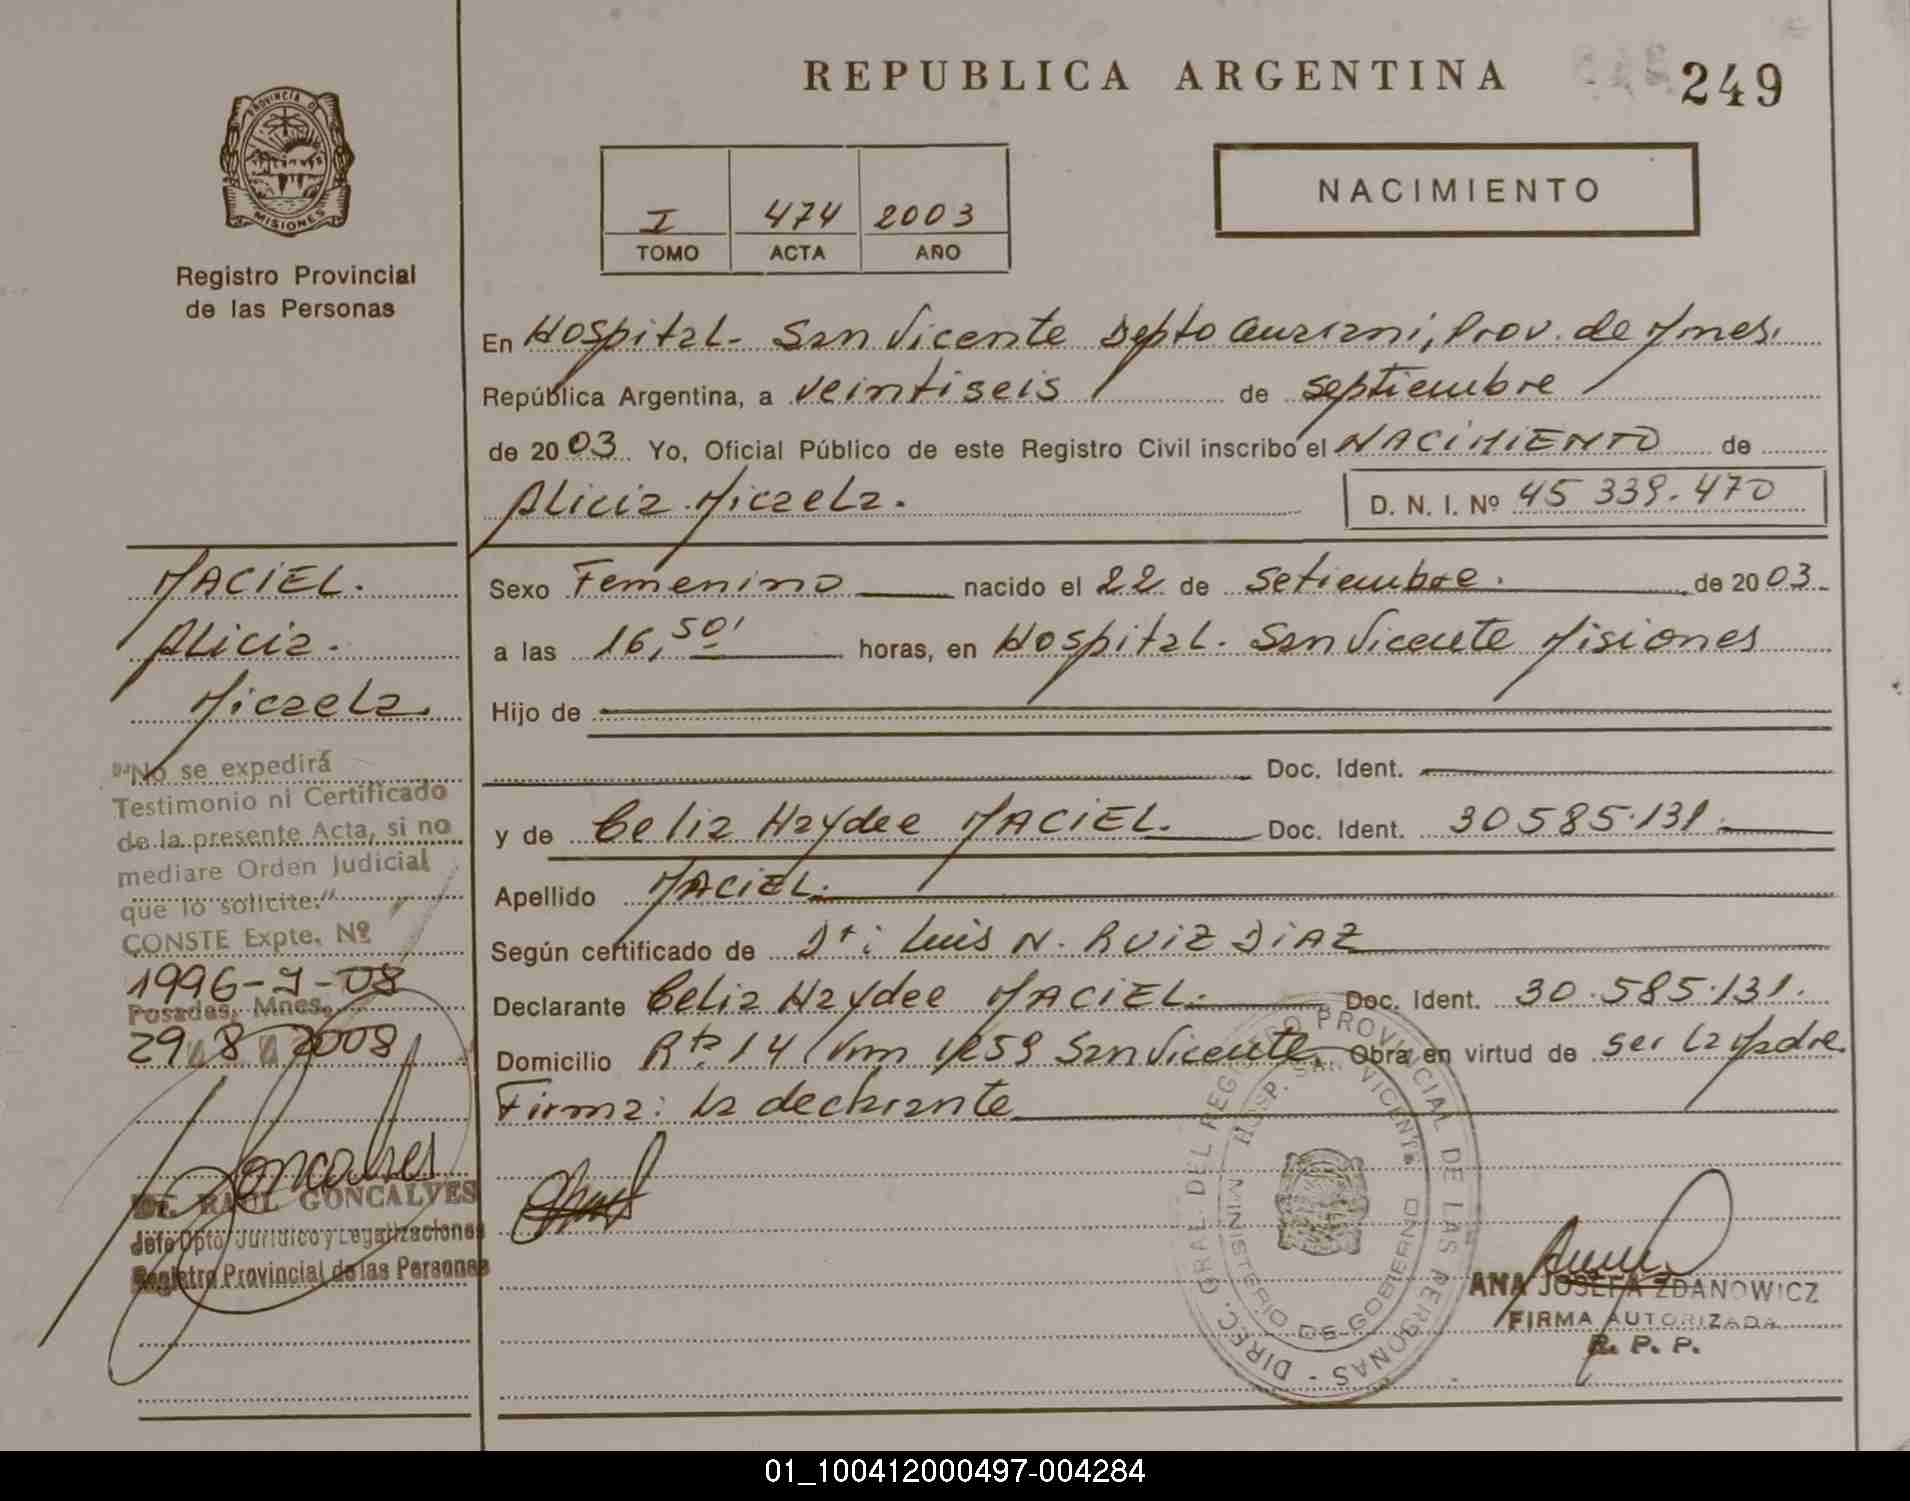 REPUBLICA ARGENTINA
249
PROVINCIA DE
MISIONES
Registro Provincial
de las Personas
I 474 2003
TOMO ACTA AÑO
NACIMIENTO
En Hospital- San Vicente Depto Guarani, Prov. de Mnes.
República Argentina, a veintiseis de septiembre
de 2003 Yo, Oficial Público de este Registro Civil inscribo el NACIMIENTO de
Alicia Micaela.
D. N. I. Nº 45 339.470
MACIEL.
Alicia.
Micaela.
Sexo Femenino nacido el 22 de Setiembre. de 2003
a las 16,50' horas, en Hospital. San Vicente Misiones
Hijo de
Doc. Ident.
y de Celia Haydee MACIEL. Doc. Ident. 30 585.131.
Apellido MACIEL.
Según certificado de Dr: Luis N. RUIZ DIAZ
Declarante Celia Haydee MACIEL. Doc. Ident. 30.585.131.
Domicilio Rta 14 Km 1259 San Vicente. Obra en virtud de ser la Madre.
Firma: la declarante
"No se expedirá
Testimonio ni Certificado
de la presente Acta, si no
mediare Orden Judicial
que lo solicite."
CONSTE Expte. Nº
1996-J-08
Posadas, Mnes.
29 8 2008
Goncalves
Dr. RAUL GONCALVES
Jefe Dpto. Jurídico y Legalizaciones
Registro Provincial de las Personas
DIREC. GRAL. DEL REGISTRO PROVINCIAL DE LAS PERSONAS -
HOSP. SAN VICENTE
MINISTERIO DE GOBIERNO
ANA JOSEFA ZDANOWICZ
FIRMA AUTORIZADA
R. P. P.
01_100412000497-004284